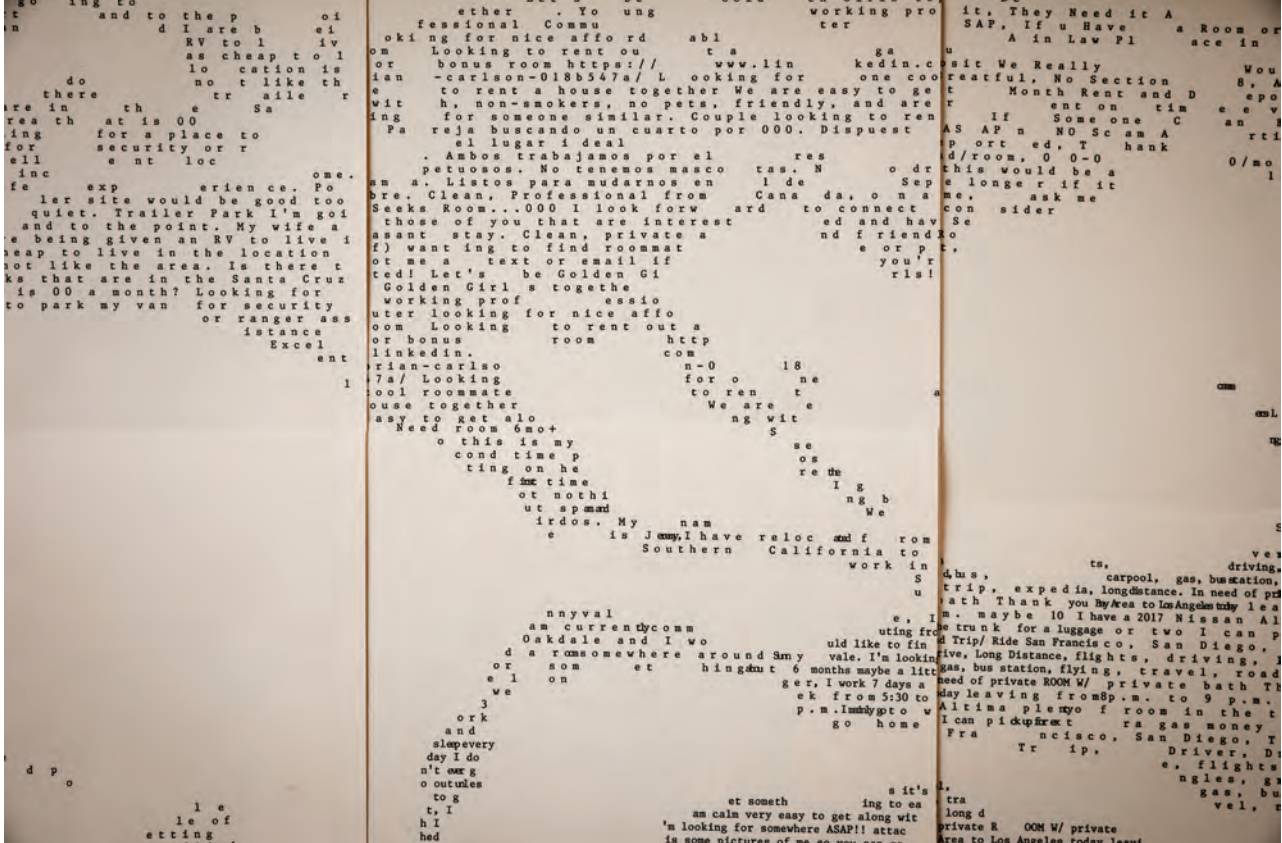 and to the p oi
d I are b ei
RV to l iv
as cheap to l
lo cation is
do no t like th
there tr aile r
are in th e Sa
rea th at is 00
ing for a place to
for security or r
ell e nt loc
inc ome.
fe exp erien ce. Po
ler site would be good too
quiet. Trailer Park I'm goi
and to the point. My wife a
e being given an RV to live i
heap to live in the location
not like the area. Is there t
ks that are in the Santa Cruz
is 00 a month? Looking for
to park my van for security
or ranger ass
istance
Excel
ent
l
d p
o
l e
le of
etting
ether . Yo ung working pro
fessional Commu ter
oking for nice affo rd abl
om Looking to rent ou t a ga
or bonus room https:// www.lin kedin.c
ian -carlson-018b547a/ L ooking for one coo
e to rent a house together We are easy to ge
wit h, non-smokers, no pets, friendly, and are
ing for someone similar. Couple looking to ren
Pa reja buscando un cuarto por 000. Dispuest
el lugar ideal
. Ambos trabajamos por el res
petuosos. No tenemos masco tas. N o dr
am a. Listos para mudarnos en 1 de Sep
bre. Clean, Professional from Cana da, o n a
Seeks Room...000 I look forw ard to connect
those of you that are interest ed and hav
asant stay. Clean, private a nd friend
f) want ing to find roommat e or p
ot me a text or email if you'r
ted! Let's be Golden Gi rls!
Golden Girl s togethe
working prof essio
uter looking for nice affo
oom Looking to rent out a
or bonus room http
linkedin. com
rian-carlso n-0 18
7a/ Looking for o ne
ool roommate to ren t a
ouse together We are e
asy to get alo ng wit
Need room 6mo+ S
o this is my se
cond time p os
ting on he re the
first time I g
ot nothi ng b
ut spam and We
irdos. My nam
e is Jenny, I have reloc ated f rom
Southern California to
work in
S
u
nnyval e, I
am currently comm uting fro
Oakdale and I wo uld like to fin
d a room somewhere around Sunny vale. I'm lookin
or som et hing about 6 months maybe a litt
e l on ger, I work 7 days a
we ek from 5:30 to
3 p.m. I mainly go to w
ork go home
and
sleep every
day I do
n't ever g
o out unles s it's
to g et someth ing to ea
t, I am calm very easy to get along wit
h I 'm looking for somewhere ASAP!! attac
hed is some pictures of me so you can
it, They Need it A
SAP, If u Have a Room or
A in Law Pl ace in
u
sit We Really Wou
reatful, No Section 8, A
t Month Rent and D epo
r ent on tim e e v
If Some one C an
AS AP n NO Sc am A rti
p ort ed, T hank
d/room, 0 0-0 0/mo
this would be a l
e longe r if it
me, ask me
con sider
Se
o
t,
ts, driving,
d, bus, carpool, gas, bus station,
trip, expedia, long distance. In need of pri
ath Thank you Bay Area to Los Angeles today lea
m. maybe 10 I have a 2017 Nissan Al
e trunk for a luggage or two I can p
d Trip/ Ride San Francisco, San Diego,
rive, Long Distance, flights, driving,
gas, bus station, flying, travel, road
need of private ROOM W/ private bath Th
day leaving from 8p.m. to 9 p.m.
Altima plenty o f room in the t
I can pick up for ext ra gas money
Fra ncisco, San Diego, T
Tr ip, Driver, Dr
e, flights
ngles, g
gas, bu
l, vel,
tra
long d
private R OOM W/ private
Area to Los Angeles today leavi